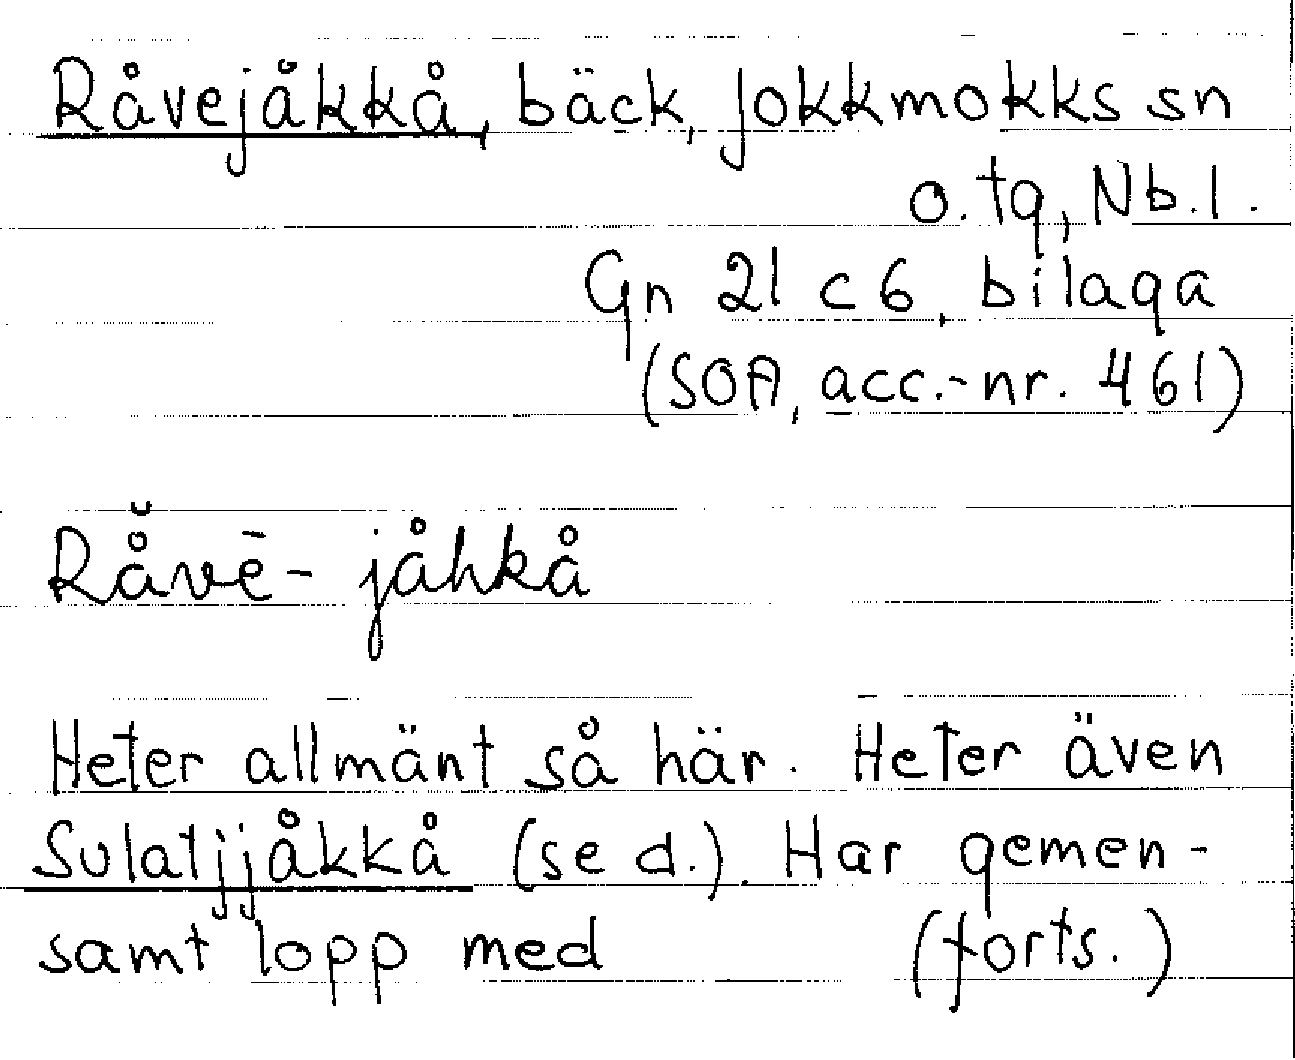 Råvejåkkå, bäck, Jokkmokks sn
o. tg, Nb.l.
Gn 21 c 6, bilaga
(SOA, acc.-nr. 461)
Rå̆vē- jåhkå
Heter allmänt så här. Heter även
Sulatjjåkkå (se d.). Har gemen-
samt lopp med (forts.)